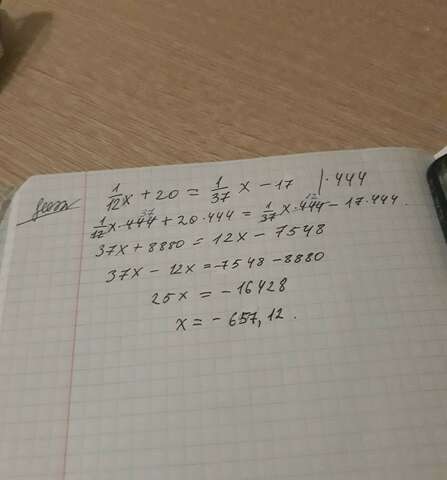 1/12 x + 20 = 1/37 x - 17 | · 444
1/12 x · 444 37 + 20 · 444 = 1/37 x · 444 12 - 17 · 444.
37x + 8880 = 12x - 7548
37x - 12x = -7548 - 8880
25x = -16428
x = -657,12.